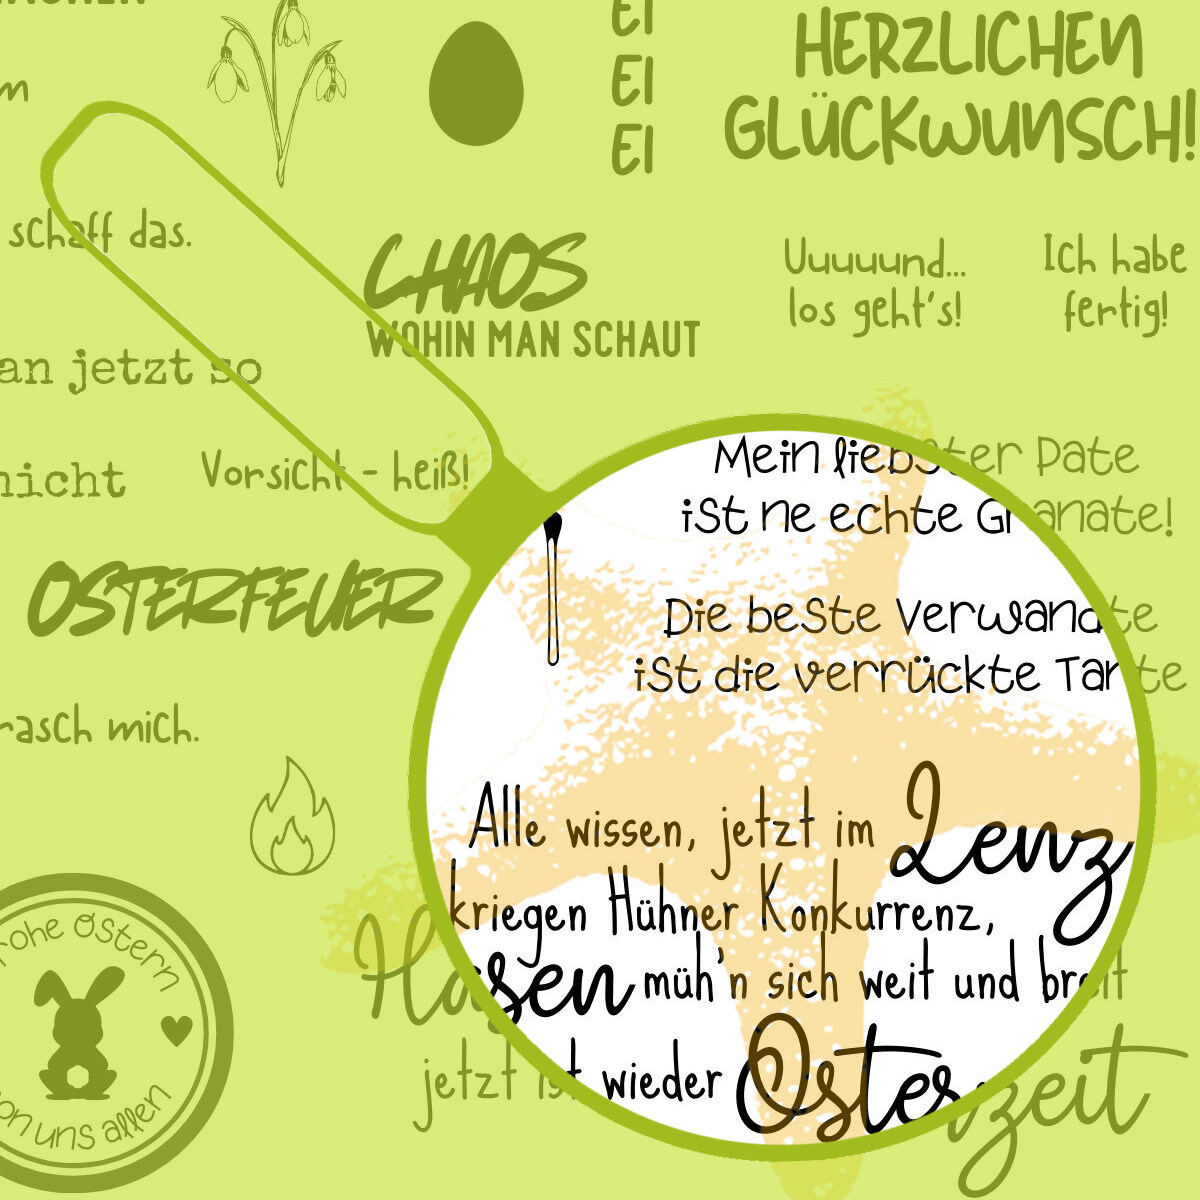 EI
EI
EI
HERZLICHEN
GLÜCKWUNSCH!
m
schaff das.
CHAOS
WOHIN MAN SCHAUT
Uuuuund...
los geht's!
Ich habe
fertig!
an jetzt so
nicht
Vorsicht - heiß!
Mein liebster Pate
ist ne echte Granate!
OSTERFEUER
Die beste Verwandte
ist die verrückte Tante
rasch mich.
Alle wissen, jetzt im Lenz
kriegen Hühner Konkurrenz,
Hasen müh'n sich weit und breit
jetzt ist wieder Osterzeit
rohe Ostern
on uns allen